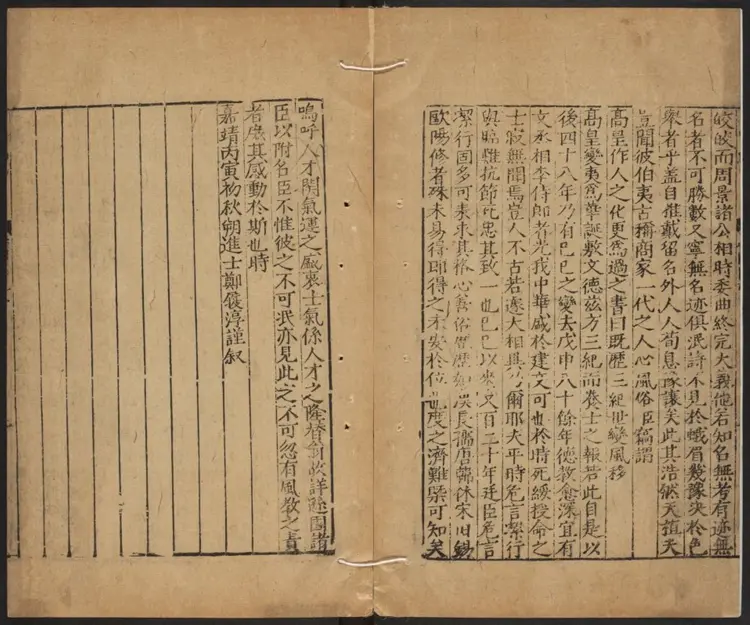 皎皎而周景諸公相時委曲終完大義他若知名無考有迹無
名者不可勝數又寧無名迹俱泯詩不見於蛾眉幾豫決於色
舉者乎蓋自推戴留名外人人荀息豫讓矣此其浩然天植夫
豈聞彼伯夷古稱商家一代之人心風俗臣竊謂
高皇作人之化更為過之書曰既歷三紀世變風移
高皇變夷為華誕敷文德茲方三紀而養士之報若此自是以
後四十八年乃有己巳之變去戊申八十餘年德教愈深宜有
文丞相李侍郎者光我中華盛於建文可也於時死綏授命之
士寂無聞焉豈人不古若遼大相與乃爾耶夫平時危言潔行
與臨難抗節死忠其致一也己巳以來又百二十年廷臣危言
潔行固多可表求其格心善俗如漢長孺唐休宋旧錫
歐陽修者殊未易得即得之未安於位也度之濟難槩可知矣
嗚呼人才關氣運之盛衰士氣係人才之隆替詳諸
臣以附名臣不惟彼之不可泯亦見此之不可忽有風教之責
者庶其感動於斯也時
嘉靖丙寅初秋朔進士鄭履淳謹叙